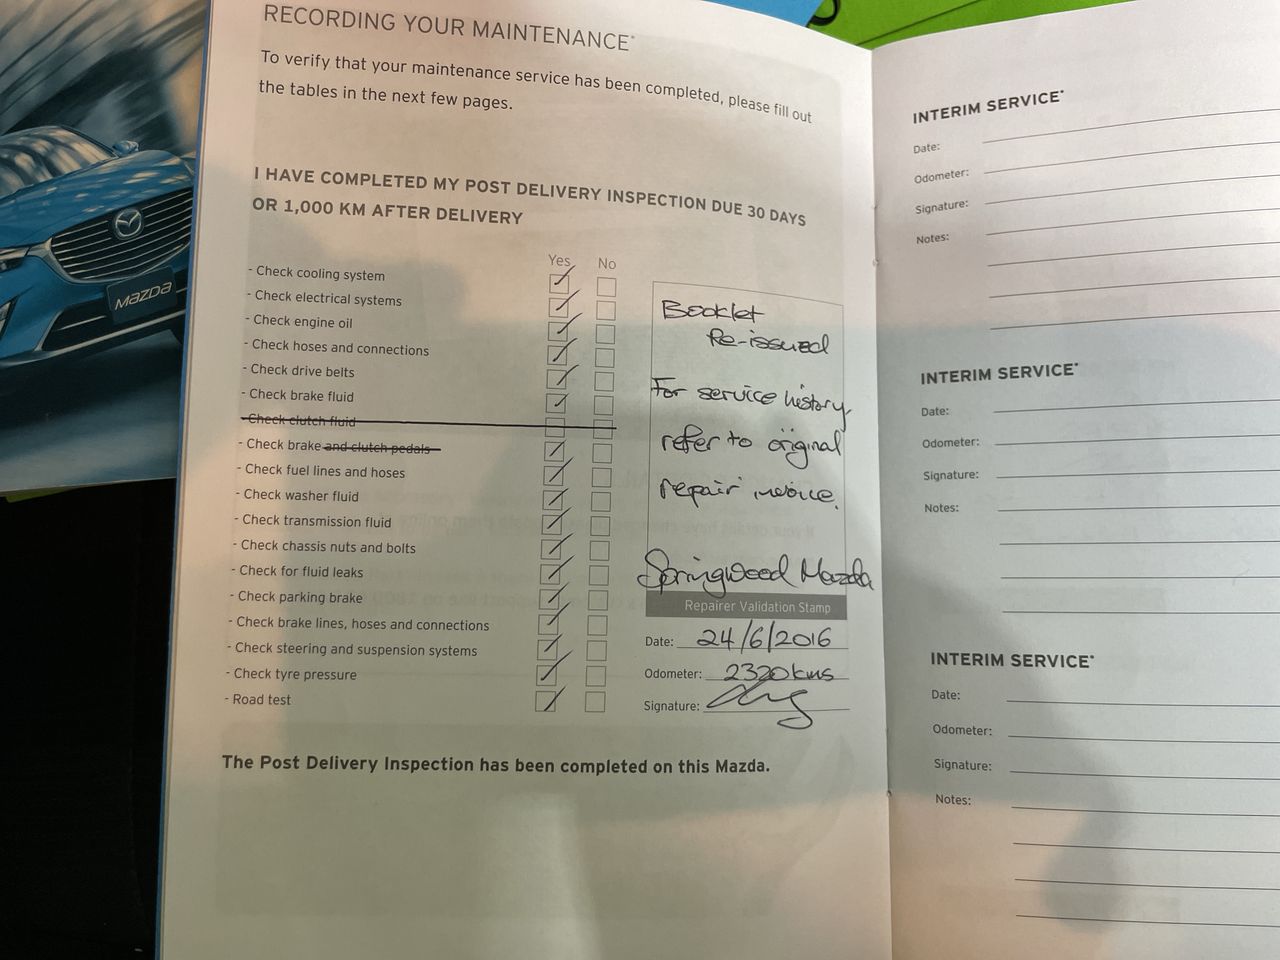 RECORDING YOUR MAINTENANCE*
To verify that your maintenance service has been completed, please fill out
the tables in the next few pages.
I HAVE COMPLETED MY POST DELIVERY INSPECTION DUE 30 DAYS
OR 1,000 KM AFTER DELIVERY
Yes No
- Check cooling system
- Check electrical systems
- Check engine oil
- Check hoses and connections
- Check drive belts
- Check brake fluid
- Check clutch fluid
- Check brake and clutch pedals
- Check fuel lines and hoses
- Check washer fluid
- Check transmission fluid
- Check chassis nuts and bolts
- Check for fluid leaks
- Check parking brake
- Check brake lines, hoses and connections
- Check steering and suspension systems
- Check tyre pressure
- Road test
Booklet
Re-issued
For service history
refer to original
repair invoice.
Springwood Mazda
Repairer Validation Stamp
Date: 24/6/2016
Odometer: 2320kms
Signature:
The Post Delivery Inspection has been completed on this Mazda.
INTERIM SERVICE*
Date:
Odometer:
Signature:
Notes:
INTERIM SERVICE*
Date:
Odometer:
Signature:
Notes:
INTERIM SERVICE*
Date:
Odometer:
Signature:
Notes:
mazda